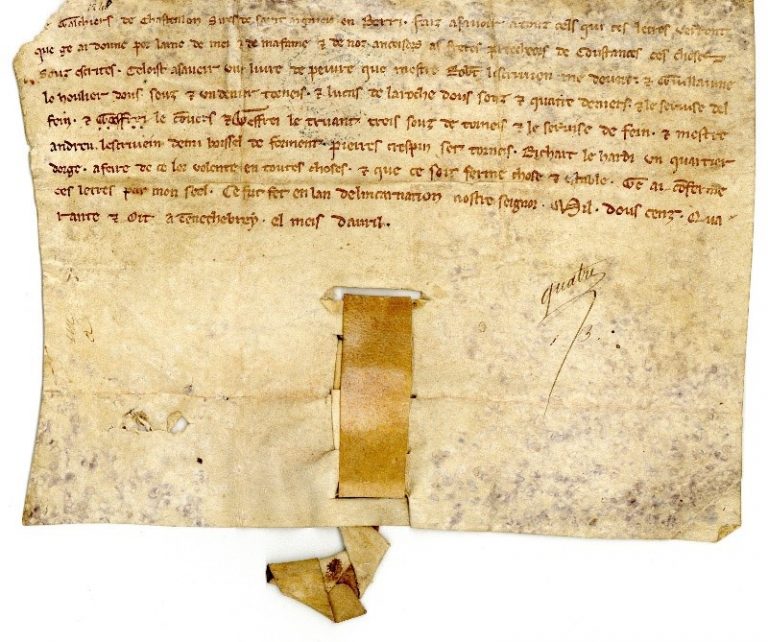 Gauchiers de Chasteillon Sires de saint aignien en Berri. faiz asavoir a touz cels qui ces letres verront
que ge ai donne por lame de mei & de ma fame & de noz ancisors as freres preecheors de Coustances ces choses
souz escrites. Celoist asaveir une livre de peivre que mestre Robt lescrivein me devoit. & Guillaume
le houlier dous souz & un denier torneis. & lucas de laroche dous souz & quatre deniers. & le servise del
fein. & Geffrei le couers & Geffrei le truant treis souz de torneis & le servise de fein. & mestre
andreu lescrivein demi boissel de forment. pierres crespin set torneis. Richart le hardi un quartier
dorge. a feire de ce lor volente en toutes choses. & que ce soit ferme chose & estable. Ge ai conferme
ces letres par mon seel. Ce fut fet en lan delincarnation nostre seignor. Mil. dous cenz. Qua
rante & Oit a Tenechebrey. el meis davril.
quatre
13.